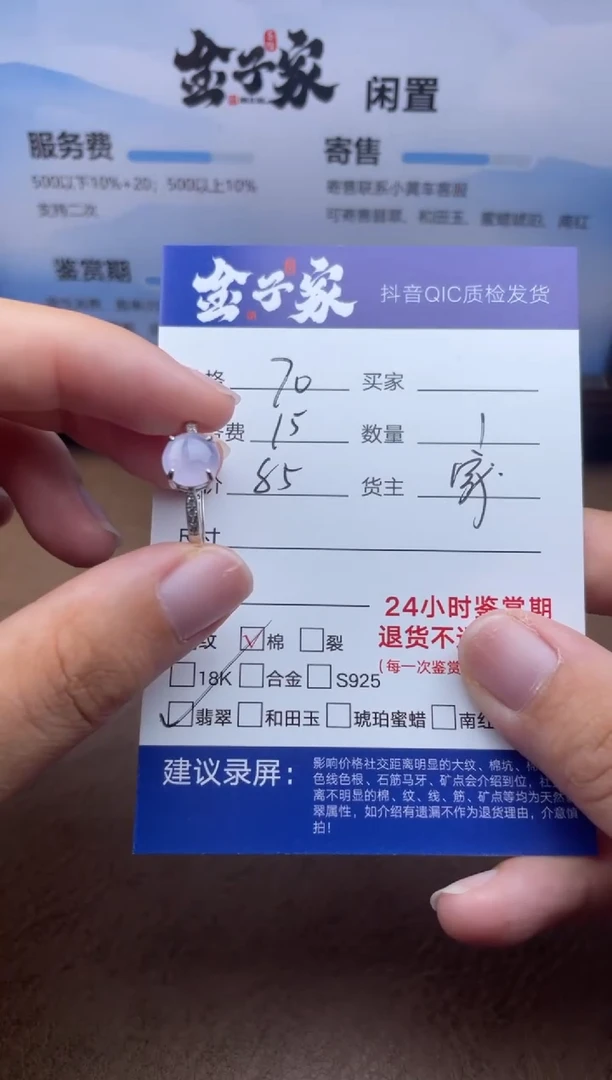 金子家 闲置
服务费
寄售
500以下10%+20; 500以上10%
寄售联系小黄车客服
支持二次
可寄售翡翠、和田玉、蜜蜡琥珀、南红
鉴赏期
金子家 抖音QIC质检发货
格 70 买家
费 15 数量 1
价 85 货主 家
尺寸
24小时鉴赏期
退货不
(每一次鉴赏
纹 棉 裂
18K 合金 S925
翡翠 和田玉 琥珀蜜蜡 南红
建议录屏:
影响价格社交距离明显的大纹、棉坑、
色线色根、石筋马牙、矿点会介绍到位,
离不明显的棉、纹、线、筋、矿点等均为天然
翠属性,如介绍有遗漏不作为退货理由,介意慎
拍!